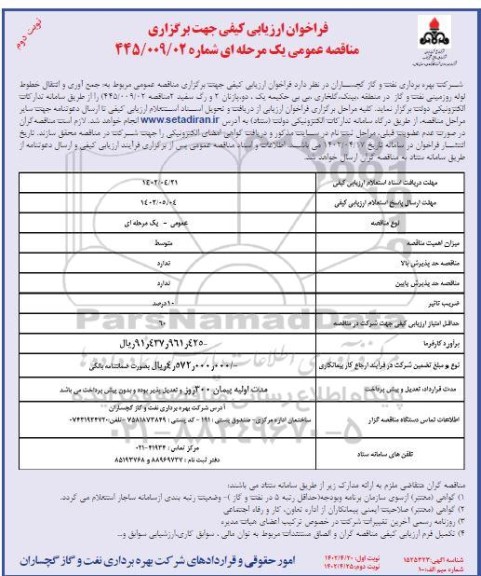 نوبت دوم
فراخوان ارزیابی کیفی جهت برگزاری
مناقصه عمومی یک مرحله ای شماره ۴۴۵/۰۰۹/۰۲
شرکت بهره برداری نفت و گاز گچساران در نظر دارد فراخوان ارزیابی کیفی جهت برگزاری مناقصه عمومی مربوط به: جمع آوری و انتقال خطوط
لوله روزمینی نفت و گاز در منطقه بینک، گلخاری، بی بی حکیمه یک، دو، پازنان ۲ و رگ سفید ۲مناقصه ۴۴۵/۰۰۹/۰۲) را از طریق سامانه تدارکات
الکترونیکی دولت برگزار نماید. کلیه مراحل برگزاری فراخوان ارزیابی از دریافت و تحویل اسناد استعلام ارزیابی کیفی تا ارسال دعوتنامه جهت سایر
مراحل مناقصه، از طریق درگاه سامانه تدارکات الکترونیکی دولت (ستاد) به آدرس www.setadiran.ir انجام خواهد شد. لازم است مناقصه گران
در صورت عدم عضویت قبلی، مراحل ثبت نام در سایت مذکور و دریافت گواهی امضای الکترونیکی را جهت شرکت در مناقصه محقق سازند. تاریخ
انتشار فراخوان در سامانه تاریخ ۱۴۰۲/۰۴/۱۷ می باشد. اطلاعات و اسناد مناقصه عمومی پس از برگزاری فرآیند ارزیابی کیفی و ارسال دعوتنامه از
طریق سامانه ستاد به مناقصه گران ارسال خواهد شد.
مهلت دریافت اسناد استعلام ارزیابی کیفی ۱۴۰۲/۰۴/۲۱
مهلت ارسال پاسخ استعلام ارزیابی کیفی ۱۴۰۲/۰۵/۰۴
نوع مناقصه عمومی - یک مرحله ای
میزان اهمیت مناقصه متوسط
مناقصه حد پذیرش بالا ندارد
مناقصه حد پذیرش پایین ندارد
ضریب تاثیر ۱۰درصد
حداقل امتیاز ارزیابی کیفی جهت شرکت در مناقصه ۶۰
برآورد کارفرما ۹۱٫۴۳۷٫۹۶۱٫۴۲۵ریال
نوع و مبلغ تضمین شرکت در فرآیند ارجاع کار پیمانکاری ۴٫۵۷۲٫۰۰۰٫۰۰۰/-ریال بصورت ضمانتنامه بانکی
مدت قرارداد، تعدیل و پیش پرداخت مدت اولیه پیمان ۳۰۰روز و تعدیل پذیر بوده و بدون پیش پرداخت می باشد
اطلاعات تماس دستگاه مناقصه گزار آدرس شرکت بهره برداری نفت و گاز گچساران
ساختمان اداره مرکزی- صندوق پستی: ۱۹۱ - کد پستی: ۷۵۸۱۸۷۳۸۴۹ -تلفن:۰۷۴۳۱۹۲۴۷۲۰
تلفن های سامانه ستاد مرکز تماس: ۴۱۹۳۴-۰۲۱
دفتر ثبت نام: ۸۸۹۶۹۷۳۷ و ۸۵۱۹۳۷۶۸
مناقصه گران متقاضی ملزم به ارائه مدارک زیر از طریق سامانه ستاد می باشند:
۱) گواهی (معتبر) ازسوی سازمان برنامه وبودجه(حداقل رتبه ۵ در نفت و گاز )- وضعیت رتبه بندی ازسامانه ساجار استعلام می گردد.
۲) گواهی (معتبر) صلاحیت ایمنی پیمانکاران از اداره تعاون، کار و رفاه اجتماعی
۳) روزنامه رسمی آخرین تغییرات شرکت در خصوص ترکیب اعضای هیات مدیره
۴) تکمیل فرم ارزیابی کیفی مناقصه گران و الصاق مستندات مربوط به توان مالی ، سوابق کاری،ارزشیابی سوابق و...
امور حقوقی و قراردادهای شرکت بهره برداری نفت و گاز گچساران
نوبت اول: ۱۴۰۲/۴/۲۰
نوبت دوم:۱۴۰۲/۴/۲۵
شناسه آگهی: ۱۵۲۵۳۲۳
ParsNamadData
۰۲۱-۸۸۳۴۹۶۷۰-۵